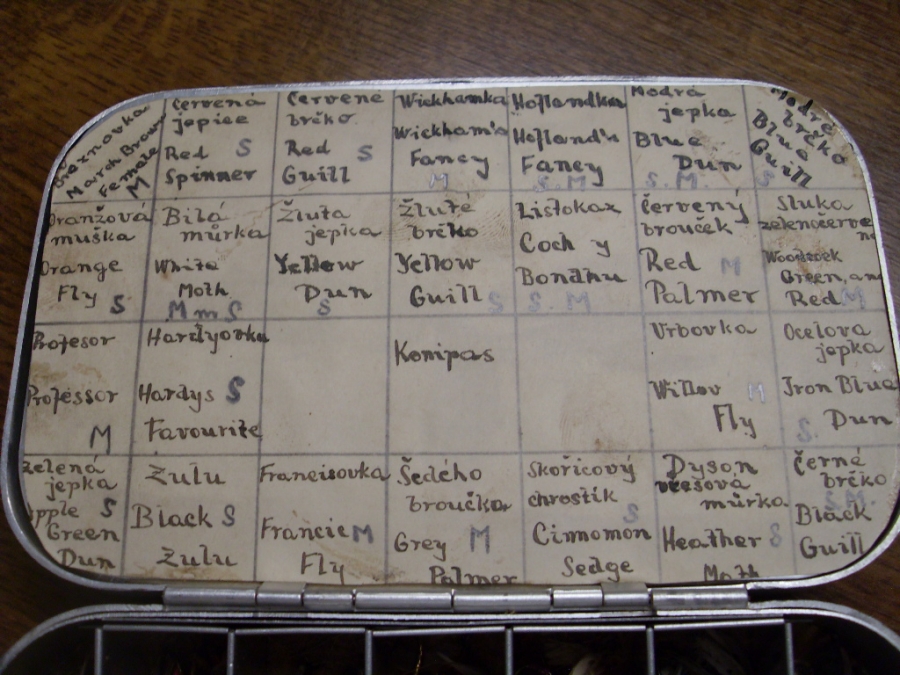 Březnovka
March Brown
Female
M
Červená
jepice
Red S
Spinner
Červené
brčko
Red S
Guill
Wickhamka
Wickham's
Fancy
M
Hoflandka
Hofland's
Fancy
S. M
Modrá
jepka
Blue
Dun
S. M.
Modré
brčko
Blue
Guill
S
Oranžová
muška
Orange
Fly S
Bílá
můrka
White
Moth
M m S
Žlutá
jepka
Yellow
Dun
S
Žluté
brčko
Yellow
Guill S
Listokax
Coch y
Bondhu
S. M
Červený
brouček
Red M
Palmer
Sluka
zelenočerve
Woodcock
Green, an
Red M
Profesor
Professor
M
Hardyovka
Hardys S
Favourite
Konipas
Vrbovka
Willov M
Fly
Ocelová
jepka
Iron Blue
S. Dun
Zelená
jepka
pple S
Green
Dun
Zulu
Black S
Zulu
Francisovka
Francie M
Fly
Šedého
broučka
Grey M
Palmer
Skořicový
chrostík
S
Cinnomon
Sedge
Dyson
vřesová
můrka
Heather S
Moth
Černé
brčko
S M.
Black
Guill